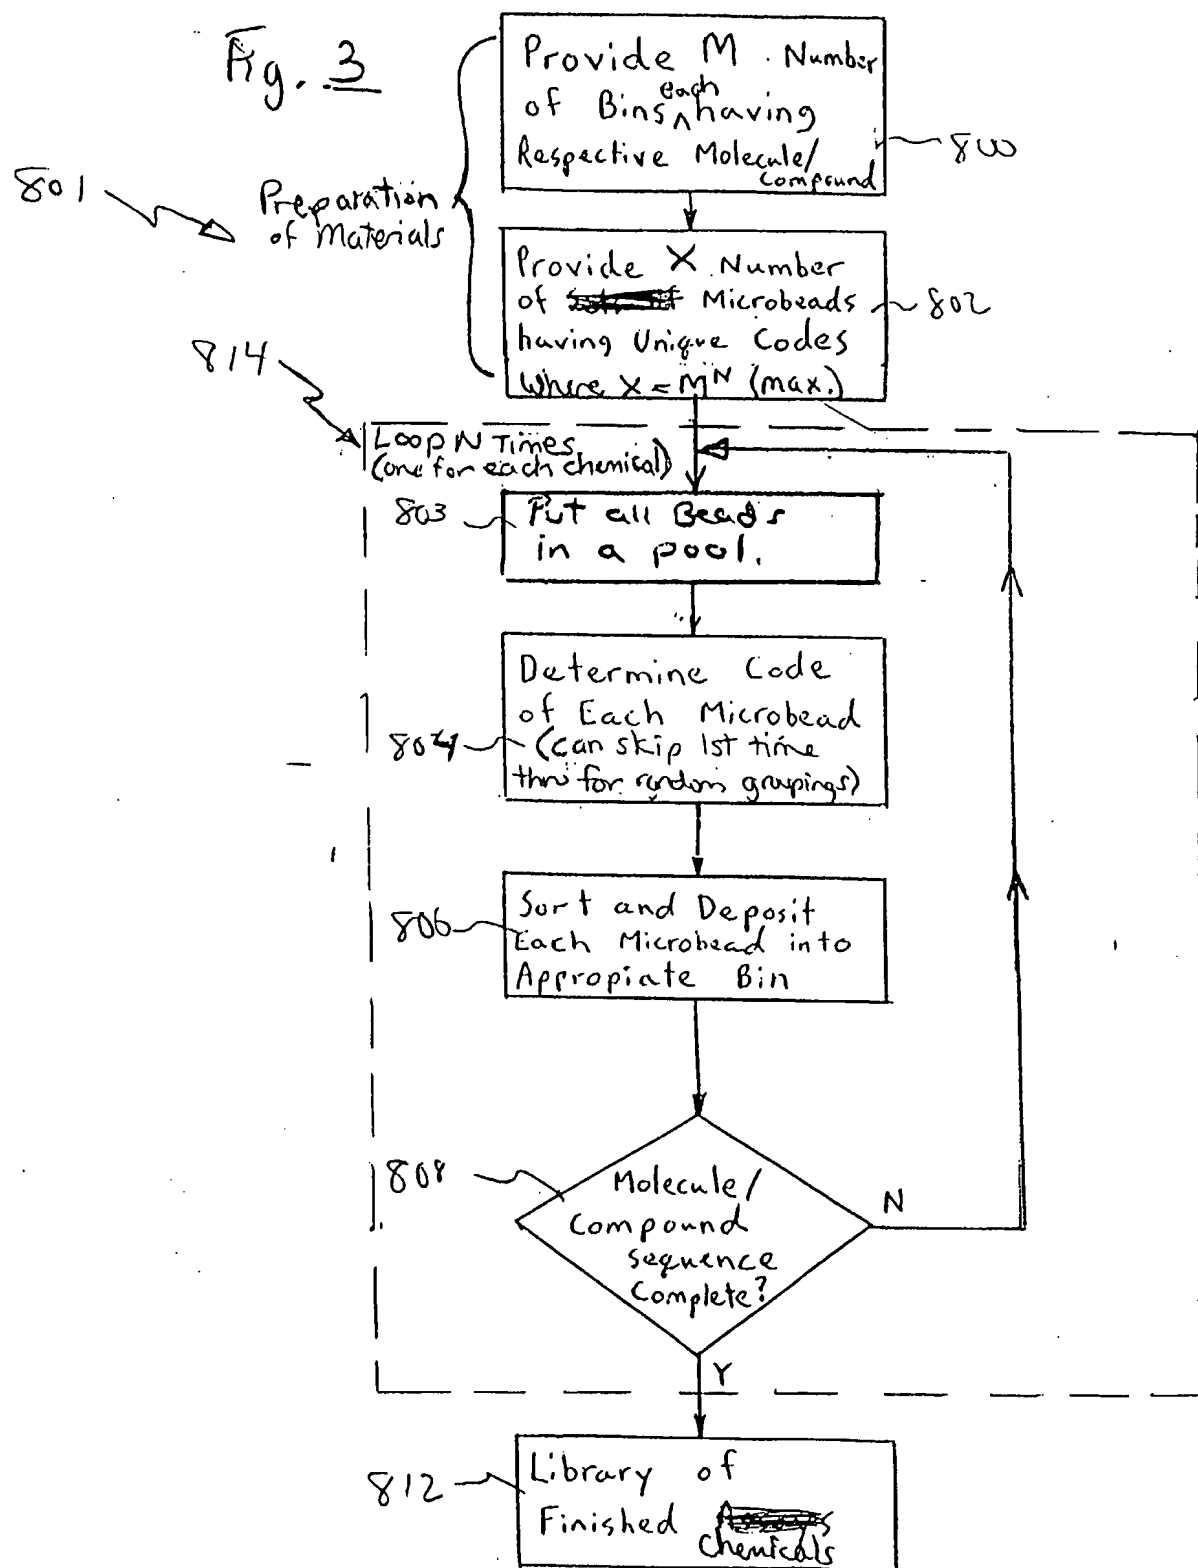 Fig. 3
Provide M Number
of Bins each having
Respective Molecule/
Compound
800
801
Preparation
of Materials
Provide X Number
of Microbeads
having Unique Codes
Where X = M^N (max.)
802
814
Loop N Times
(one for each chemical)
803
Put all Beads
in a pool.
Determine Code
of Each Microbead
(can skip 1st time
thru for random groupings)
804
Sort and Deposit
Each Microbead into
Appropiate Bin
806
808
Molecule/
Compound
sequence
Complete?
N
Y
812
Library of
Finished
Chemicals